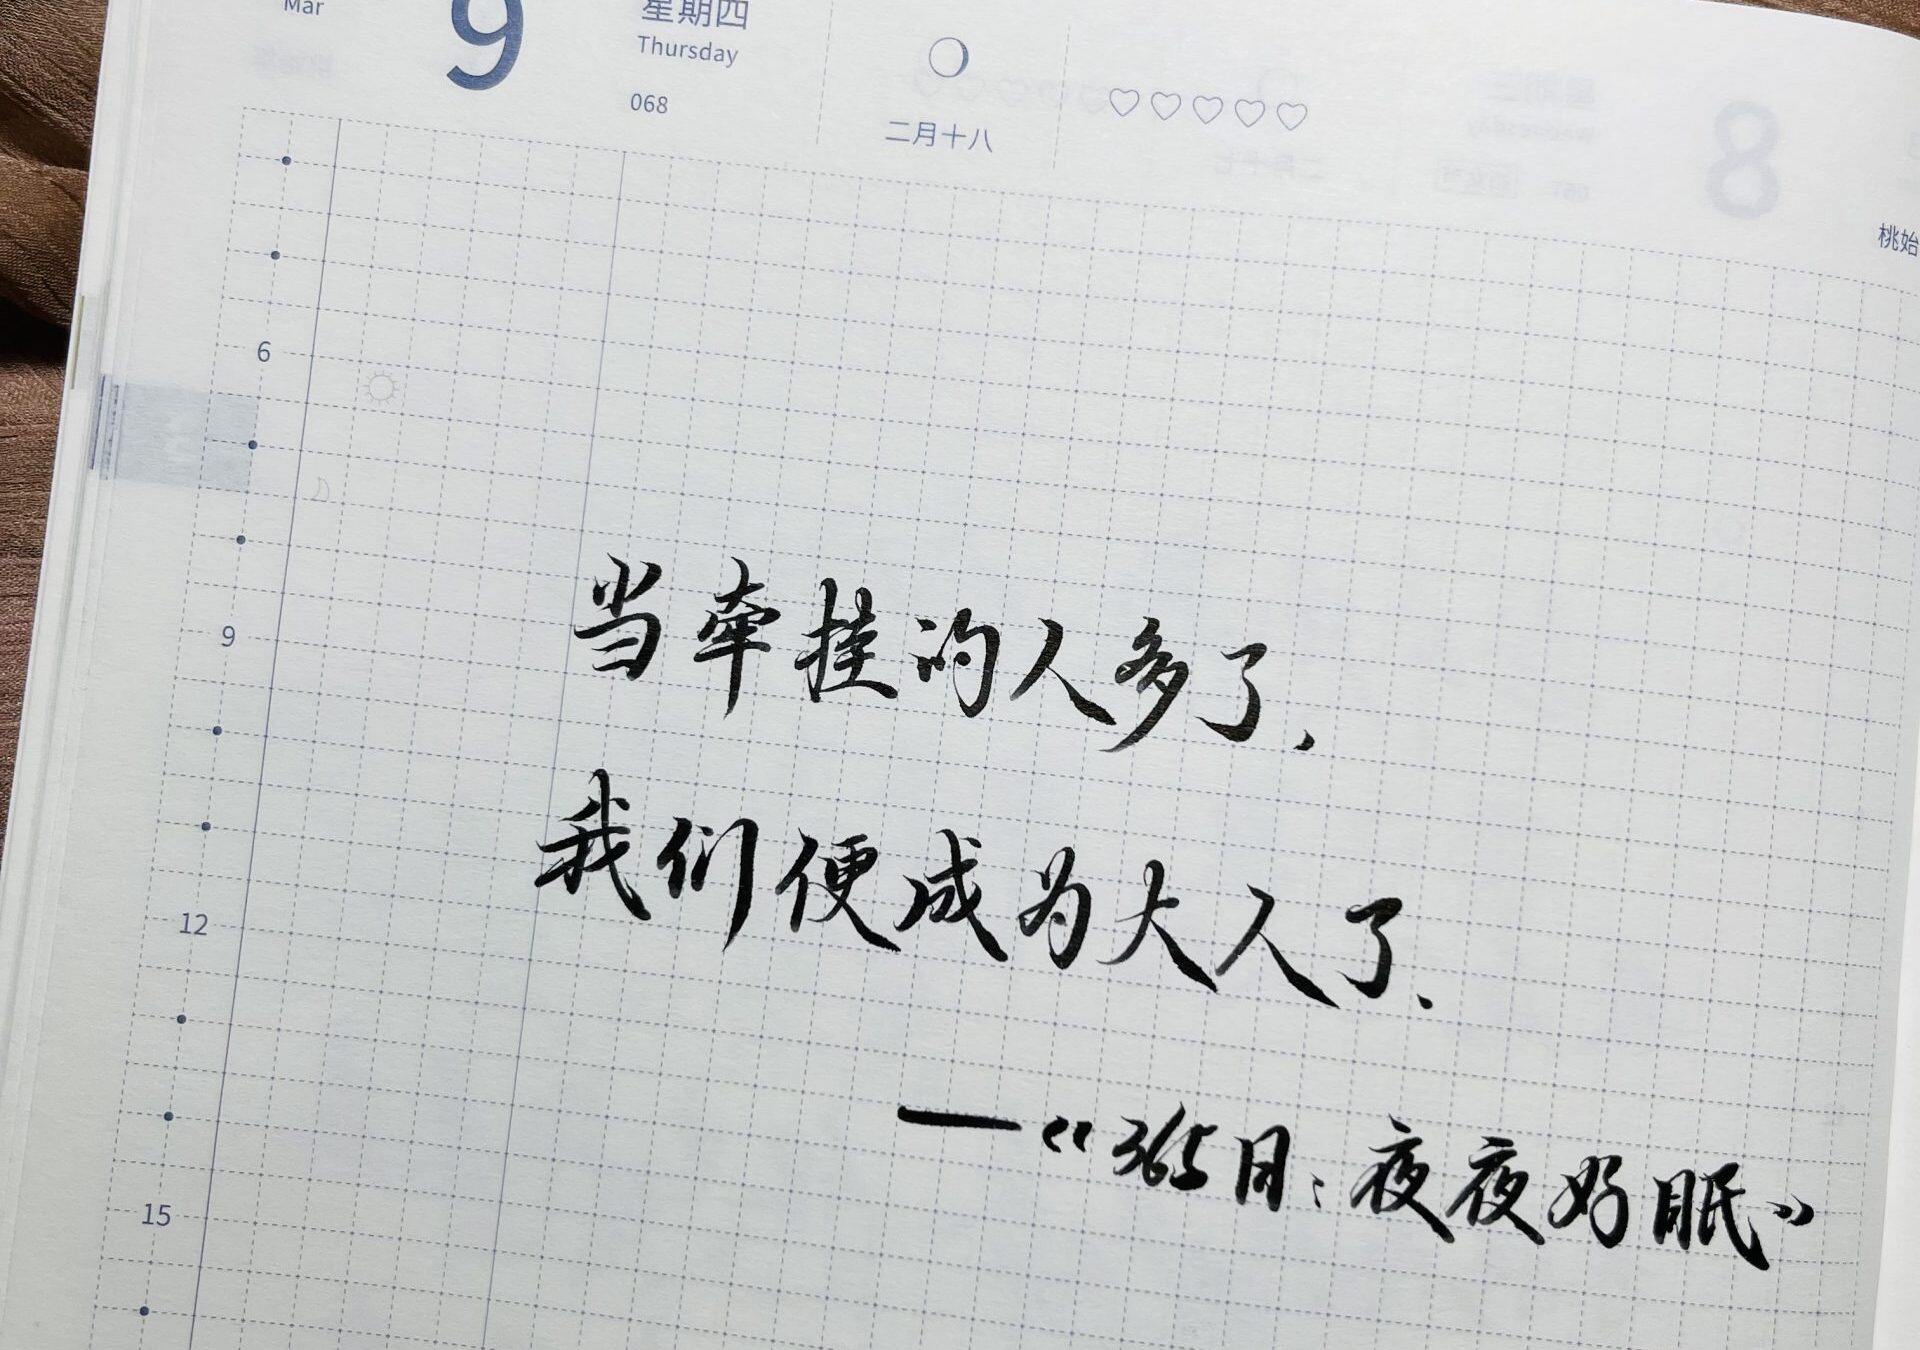 Mar
9
星期四
Thursday
068
二月十八
8
桃始
6
9
12
15
当牵挂的人多了,
我们便成为大人了.
—《365日:夜夜好眠》